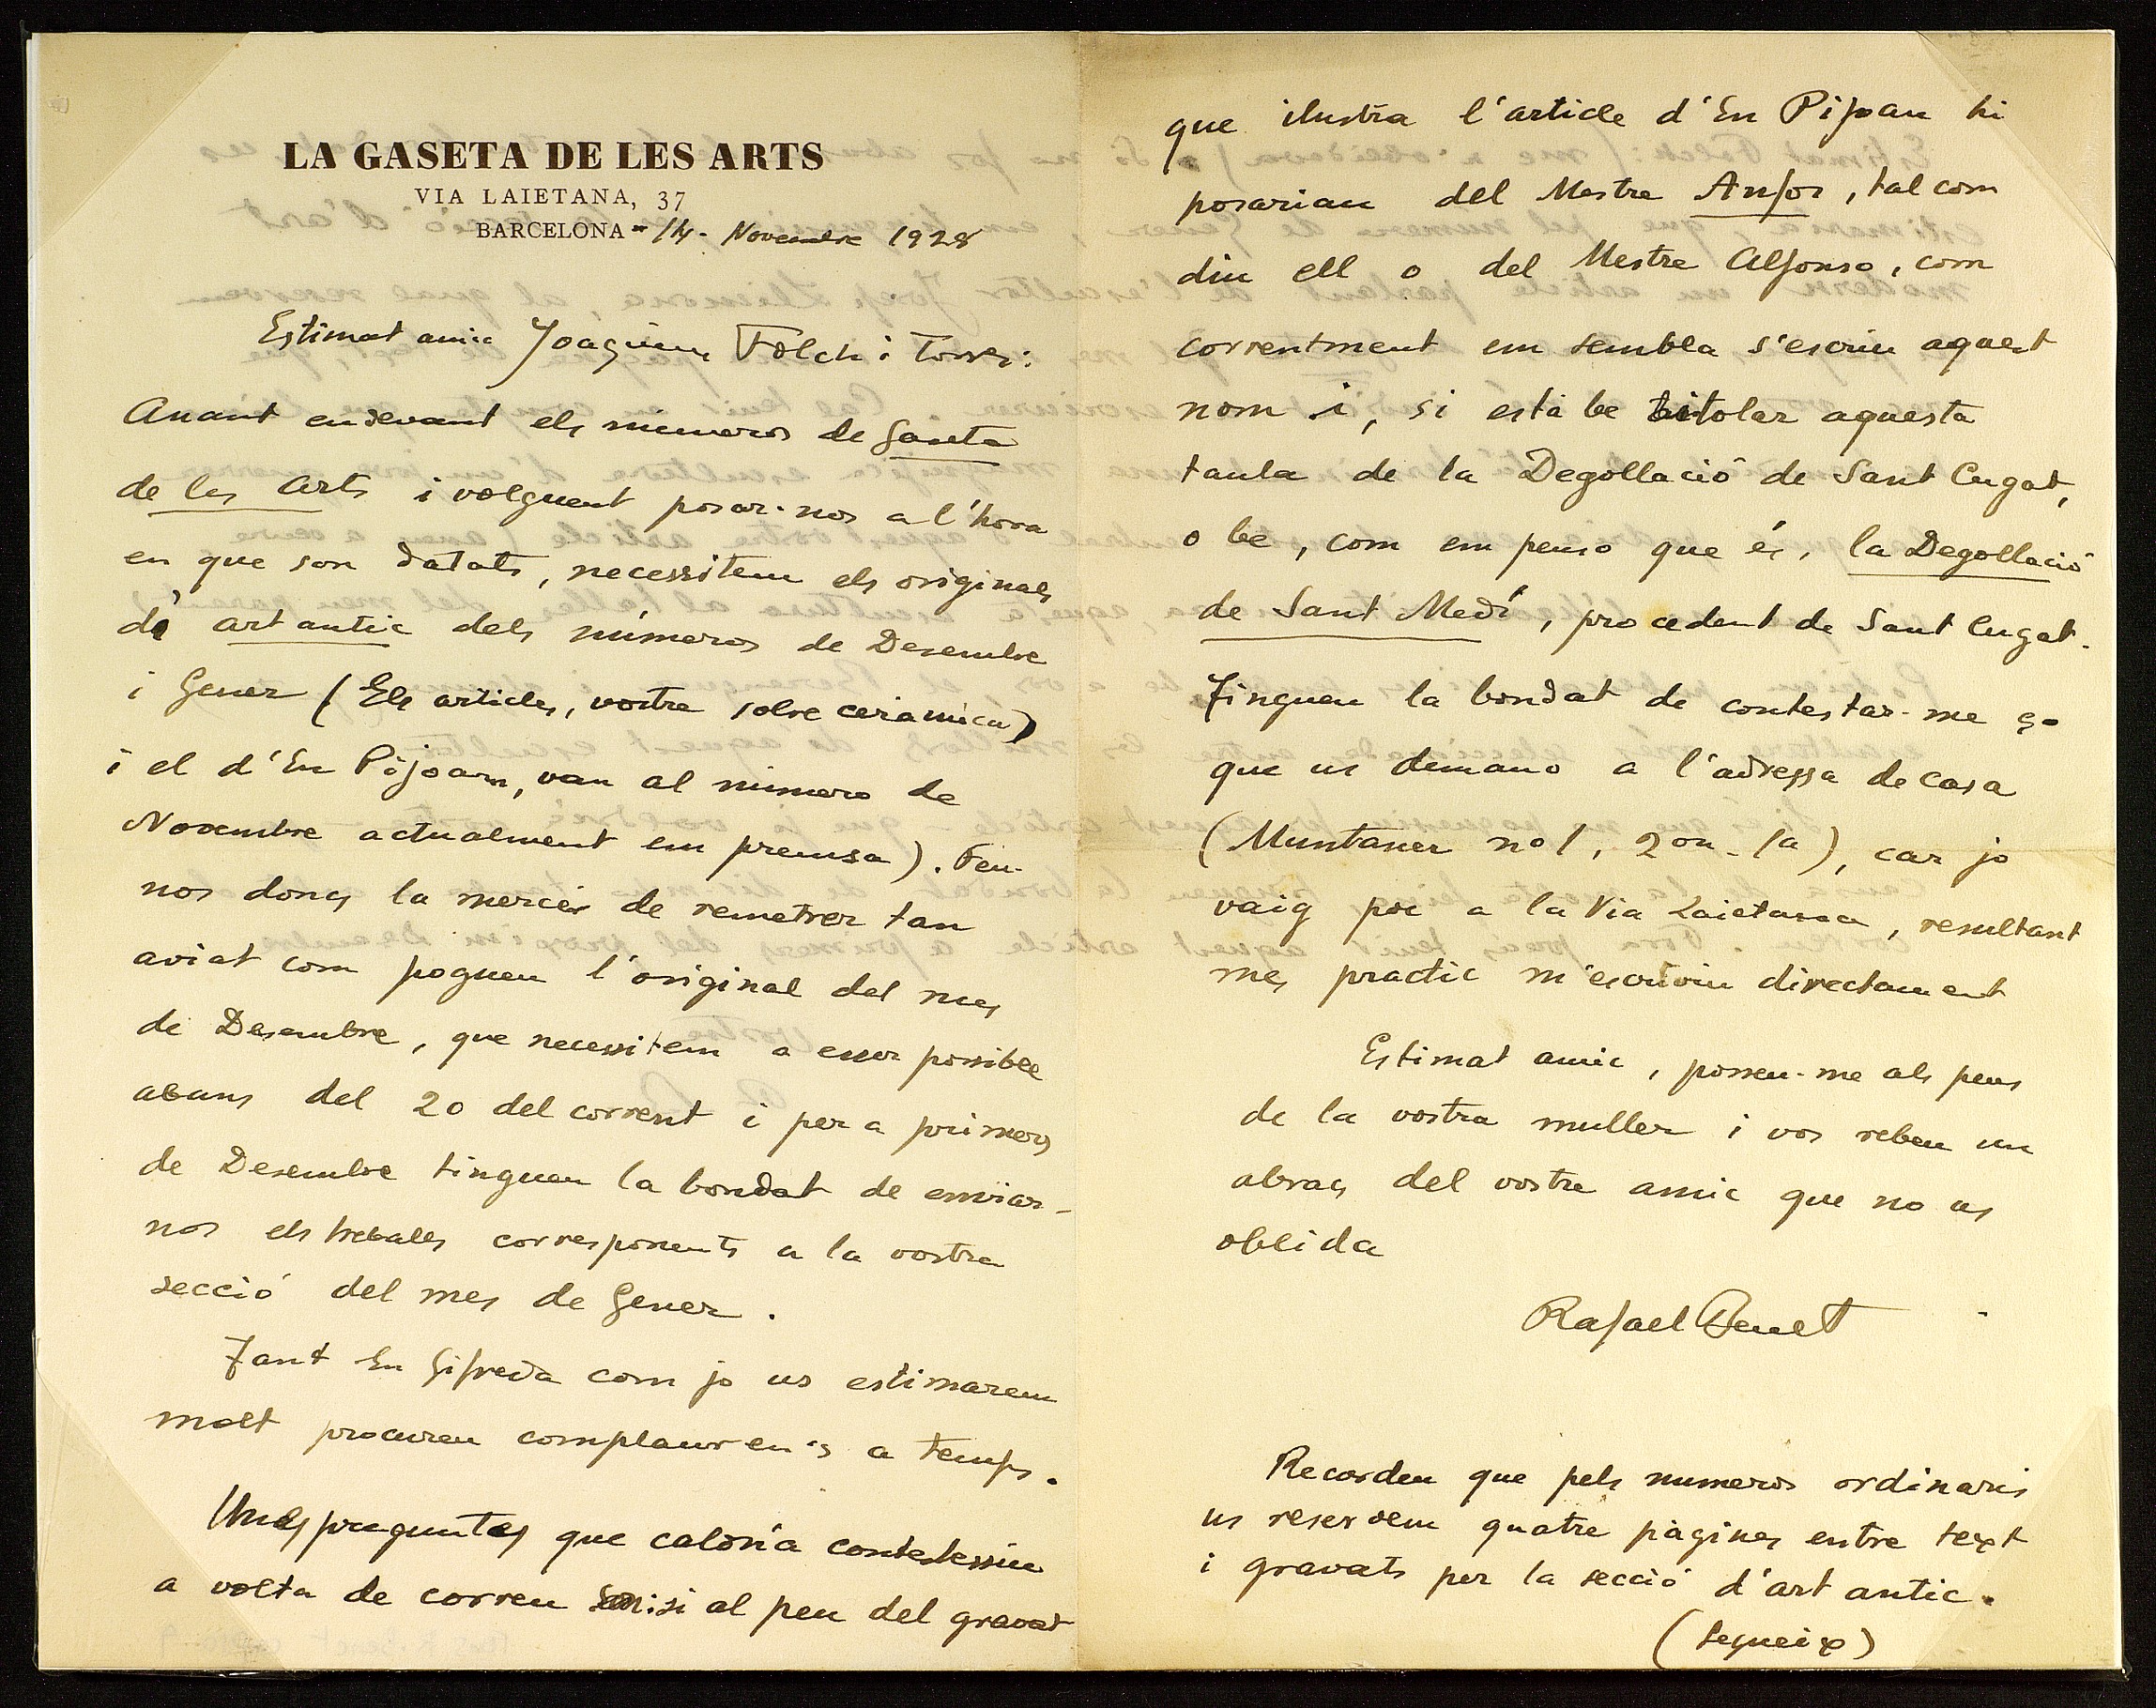 LA GASETA DE LES ARTS
VIA LAIETANA, 37
BARCELONA - 14 - Novembre 1928
Estimat amic Joaquim Folch i Torres:
Anant endevant els números de Gaseta
de les Arts i volguent posar-nos a l'hora
en que son datats, necessitem els originals
de art antic dels números de Desembre
i Gener (Els articles, vostre sobre ceramica)
i el d'En Pijoam, van al número de
Novembre actualment em premsa). Feu-
nos doncs la mercès de remetrer tan
aviat com pogueu l'original del mes
de Desembre, que necessitem a esser possible
abans del 20 del corrent i per a primers
de Desembre tingueu la bondat de enviar-
nos els treballs corresponents a la vostra
secció del mes de Gener.
Tant En Gifreda com jo us estimarem
molt procureu complaure'ns a temps.
Unes preguntes que caldria contestessiu
a volta de correu son: si al peu del gravat
que ilustra l'article d'En Pijoan hi
posariau del Mestre Anfos, tal com
diu ell o del Mestre Alfonso, com
correntment em sembla s'escriu aquest
nom i, si està be titolar aquesta
taula de la Degollació de Sant Cugat,
o be, com em penso que és, la Degollació
de Sant Medí, procedent de Sant Cugat.
Tingueu la bondat de contestar-me ço
que us demano a l'adressa de casa
(Muntaner no 1, 2on - 1a), car jo
vaig poc a la Via Laietana, resultant
mes practic m'escriviu directament
Estimat amic, poseu-me als peus
de la vostra muller i vos rebeu un
abraç del vostre amic que no us
oblida
Rafael Benet
Recordeu que pels numeros ordinaris
us reservem quatre pàgines entre text
i gravats per la secció d'art antic.
(segueix)